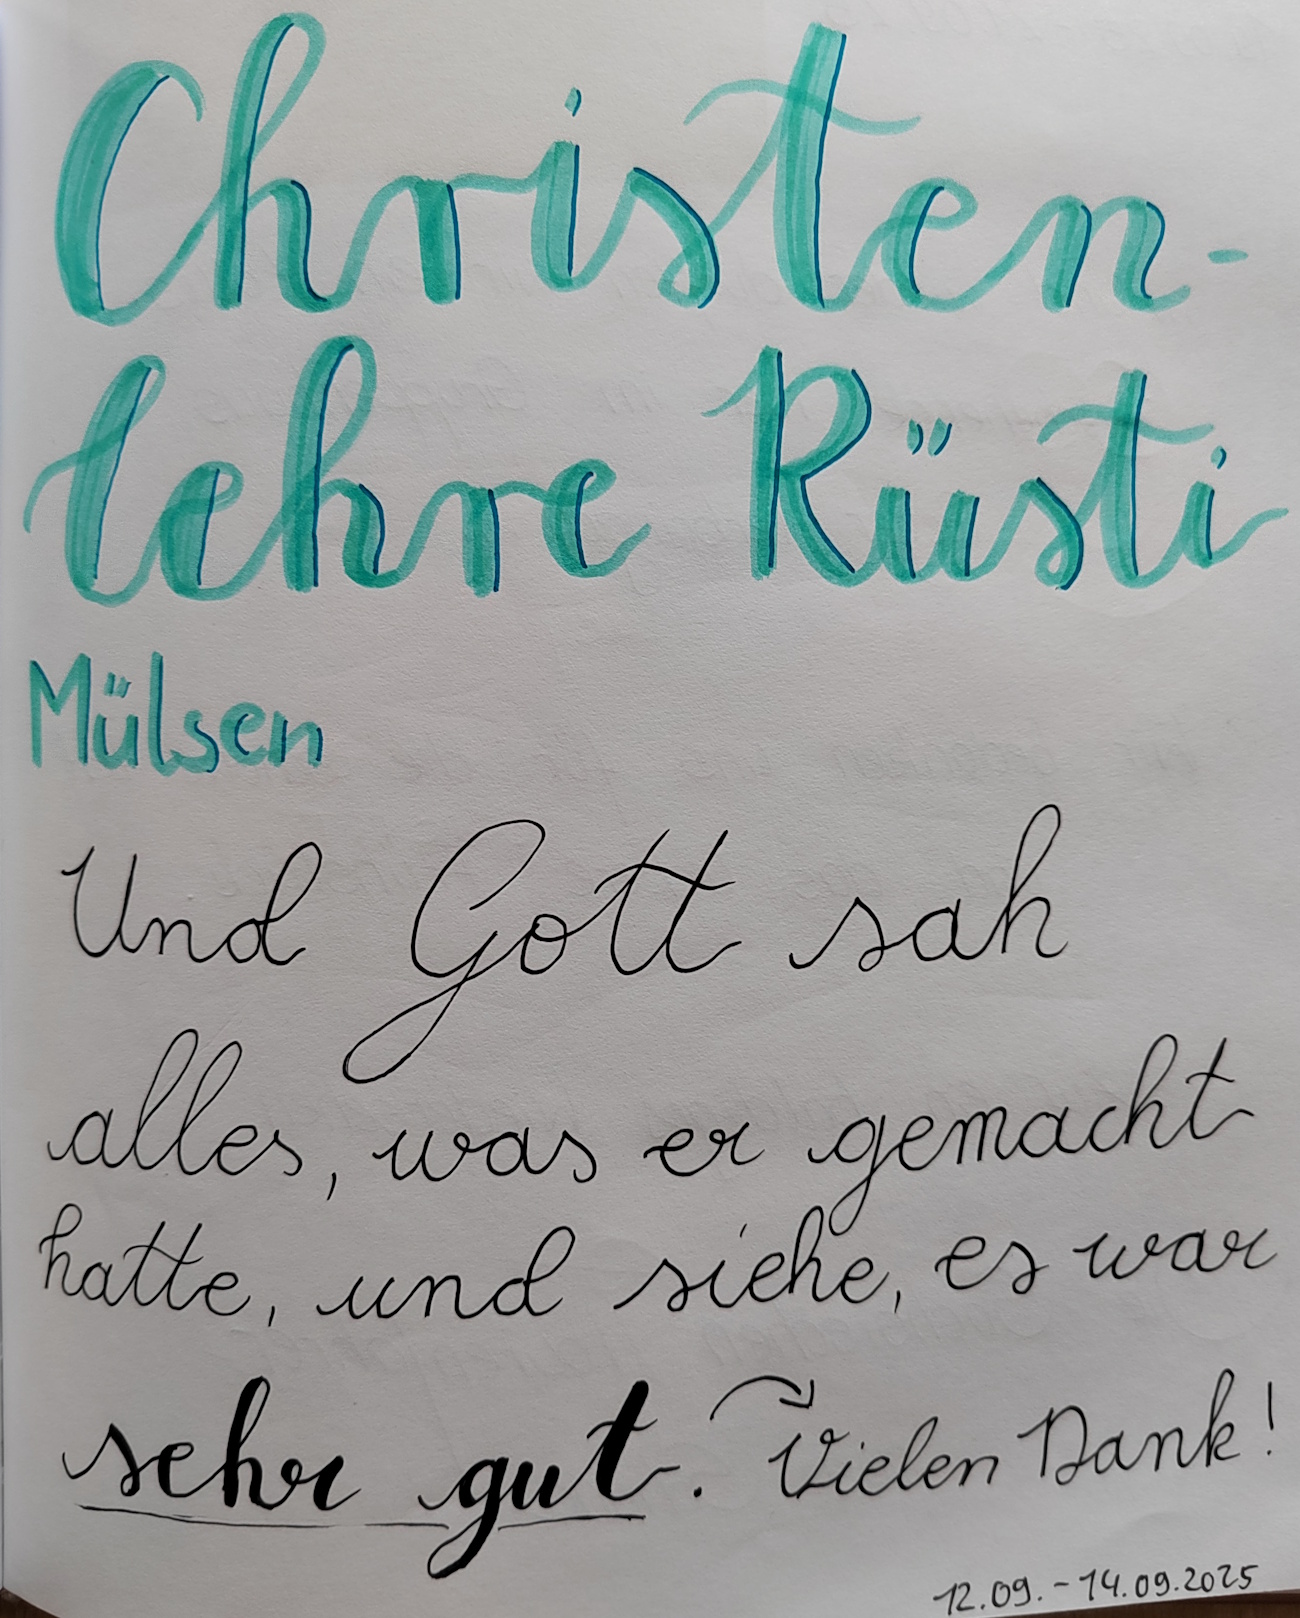 Christen-
lehre Rüsti
Mülsen
Und Gott sah
alles, was er gemacht
hatte, und siehe, es war
sehr gut. Vielen Dank!
12.09.-14.09.2025